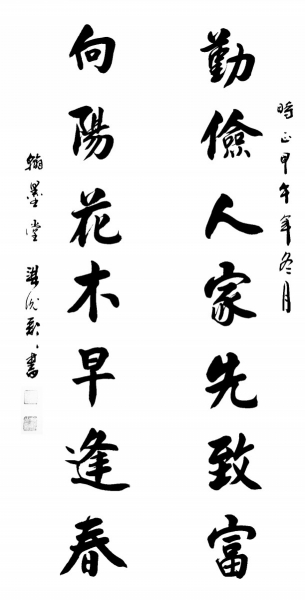 時正甲午年冬月
勤儉人家先致富
向陽花木早逢春
翰墨堂 書